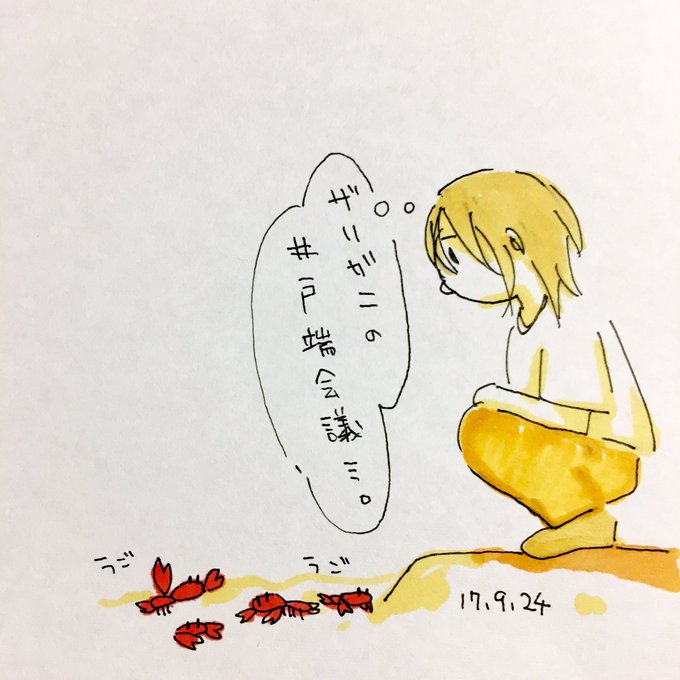 ザリガニの
井戸端会議…。
ラジ
ラジ
17.9.24